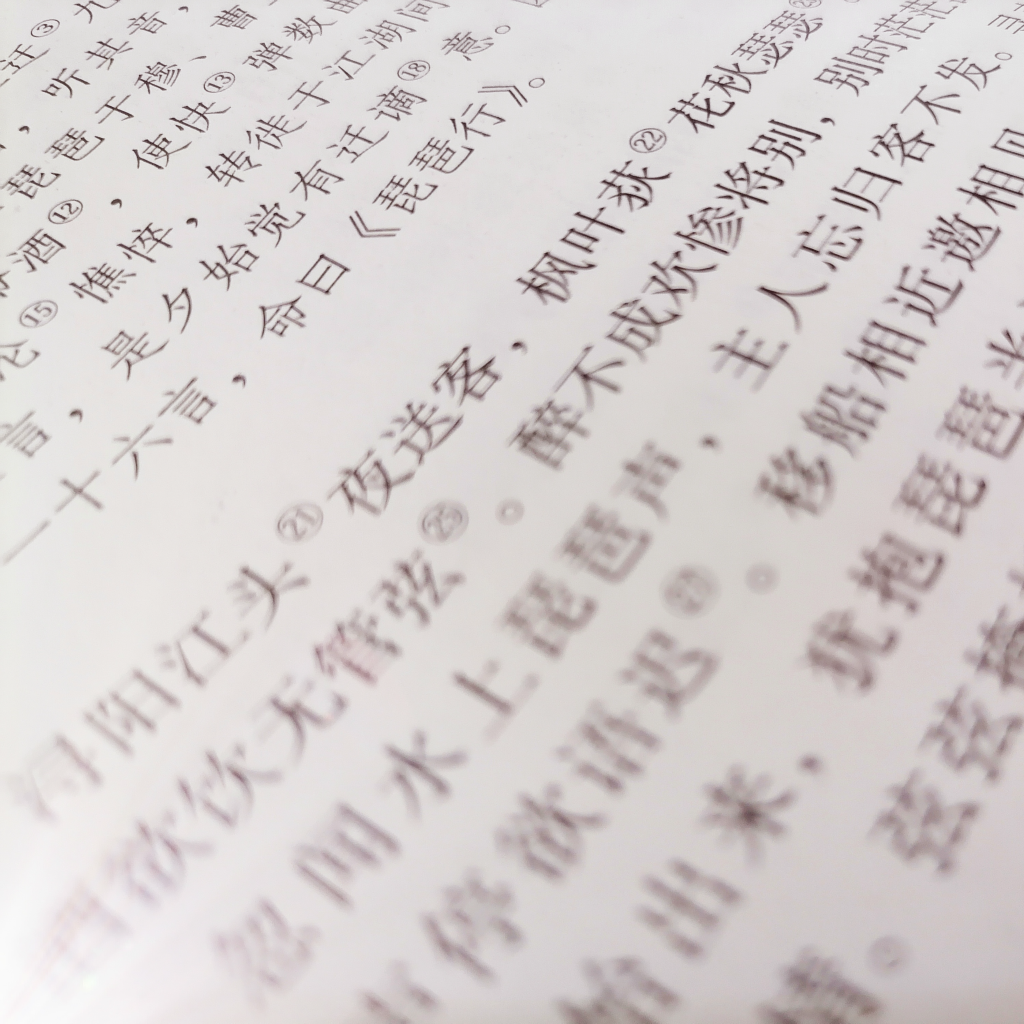 迁③九
，听其音，
琵琶于穆、曹
酒⑫，使快⑬弹数曲
沦⑮憔悴，转徙于江湖间
言，是夕始觉有迁谪⑱意。
一十六言，命曰《琵琶行》。
浔阳江头㉑夜送客，枫叶荻㉒花秋瑟瑟
酒欲饮无管弦㉕。醉不成欢惨将别，别时茫茫
忽闻水上琵琶声，主人忘归客不发。
停欲语迟。移船相近邀相见
出来，犹抱琵琶半
情。弦弦掩